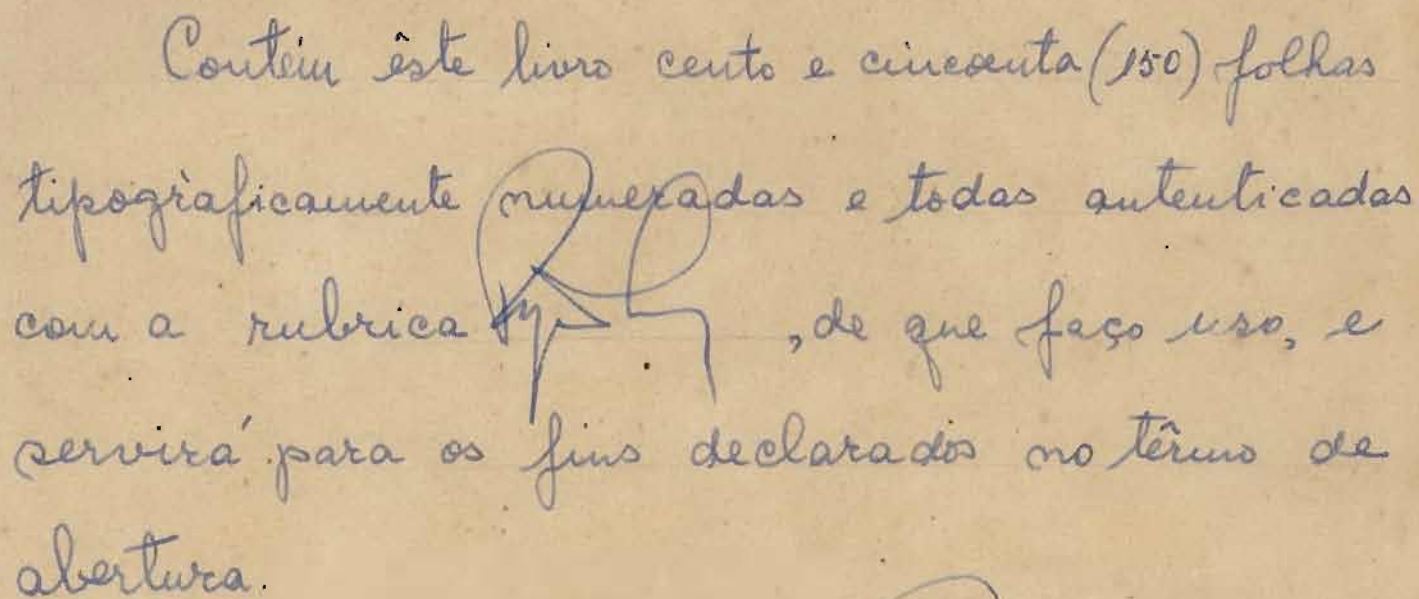 Contém êste livro cento e cincoenta (150) folhas
tipogràficamente numeradas e todas autenticadas
com a rubrica , de que faço uso, e
servirá para os fins declarados no têrmo de
abertura.